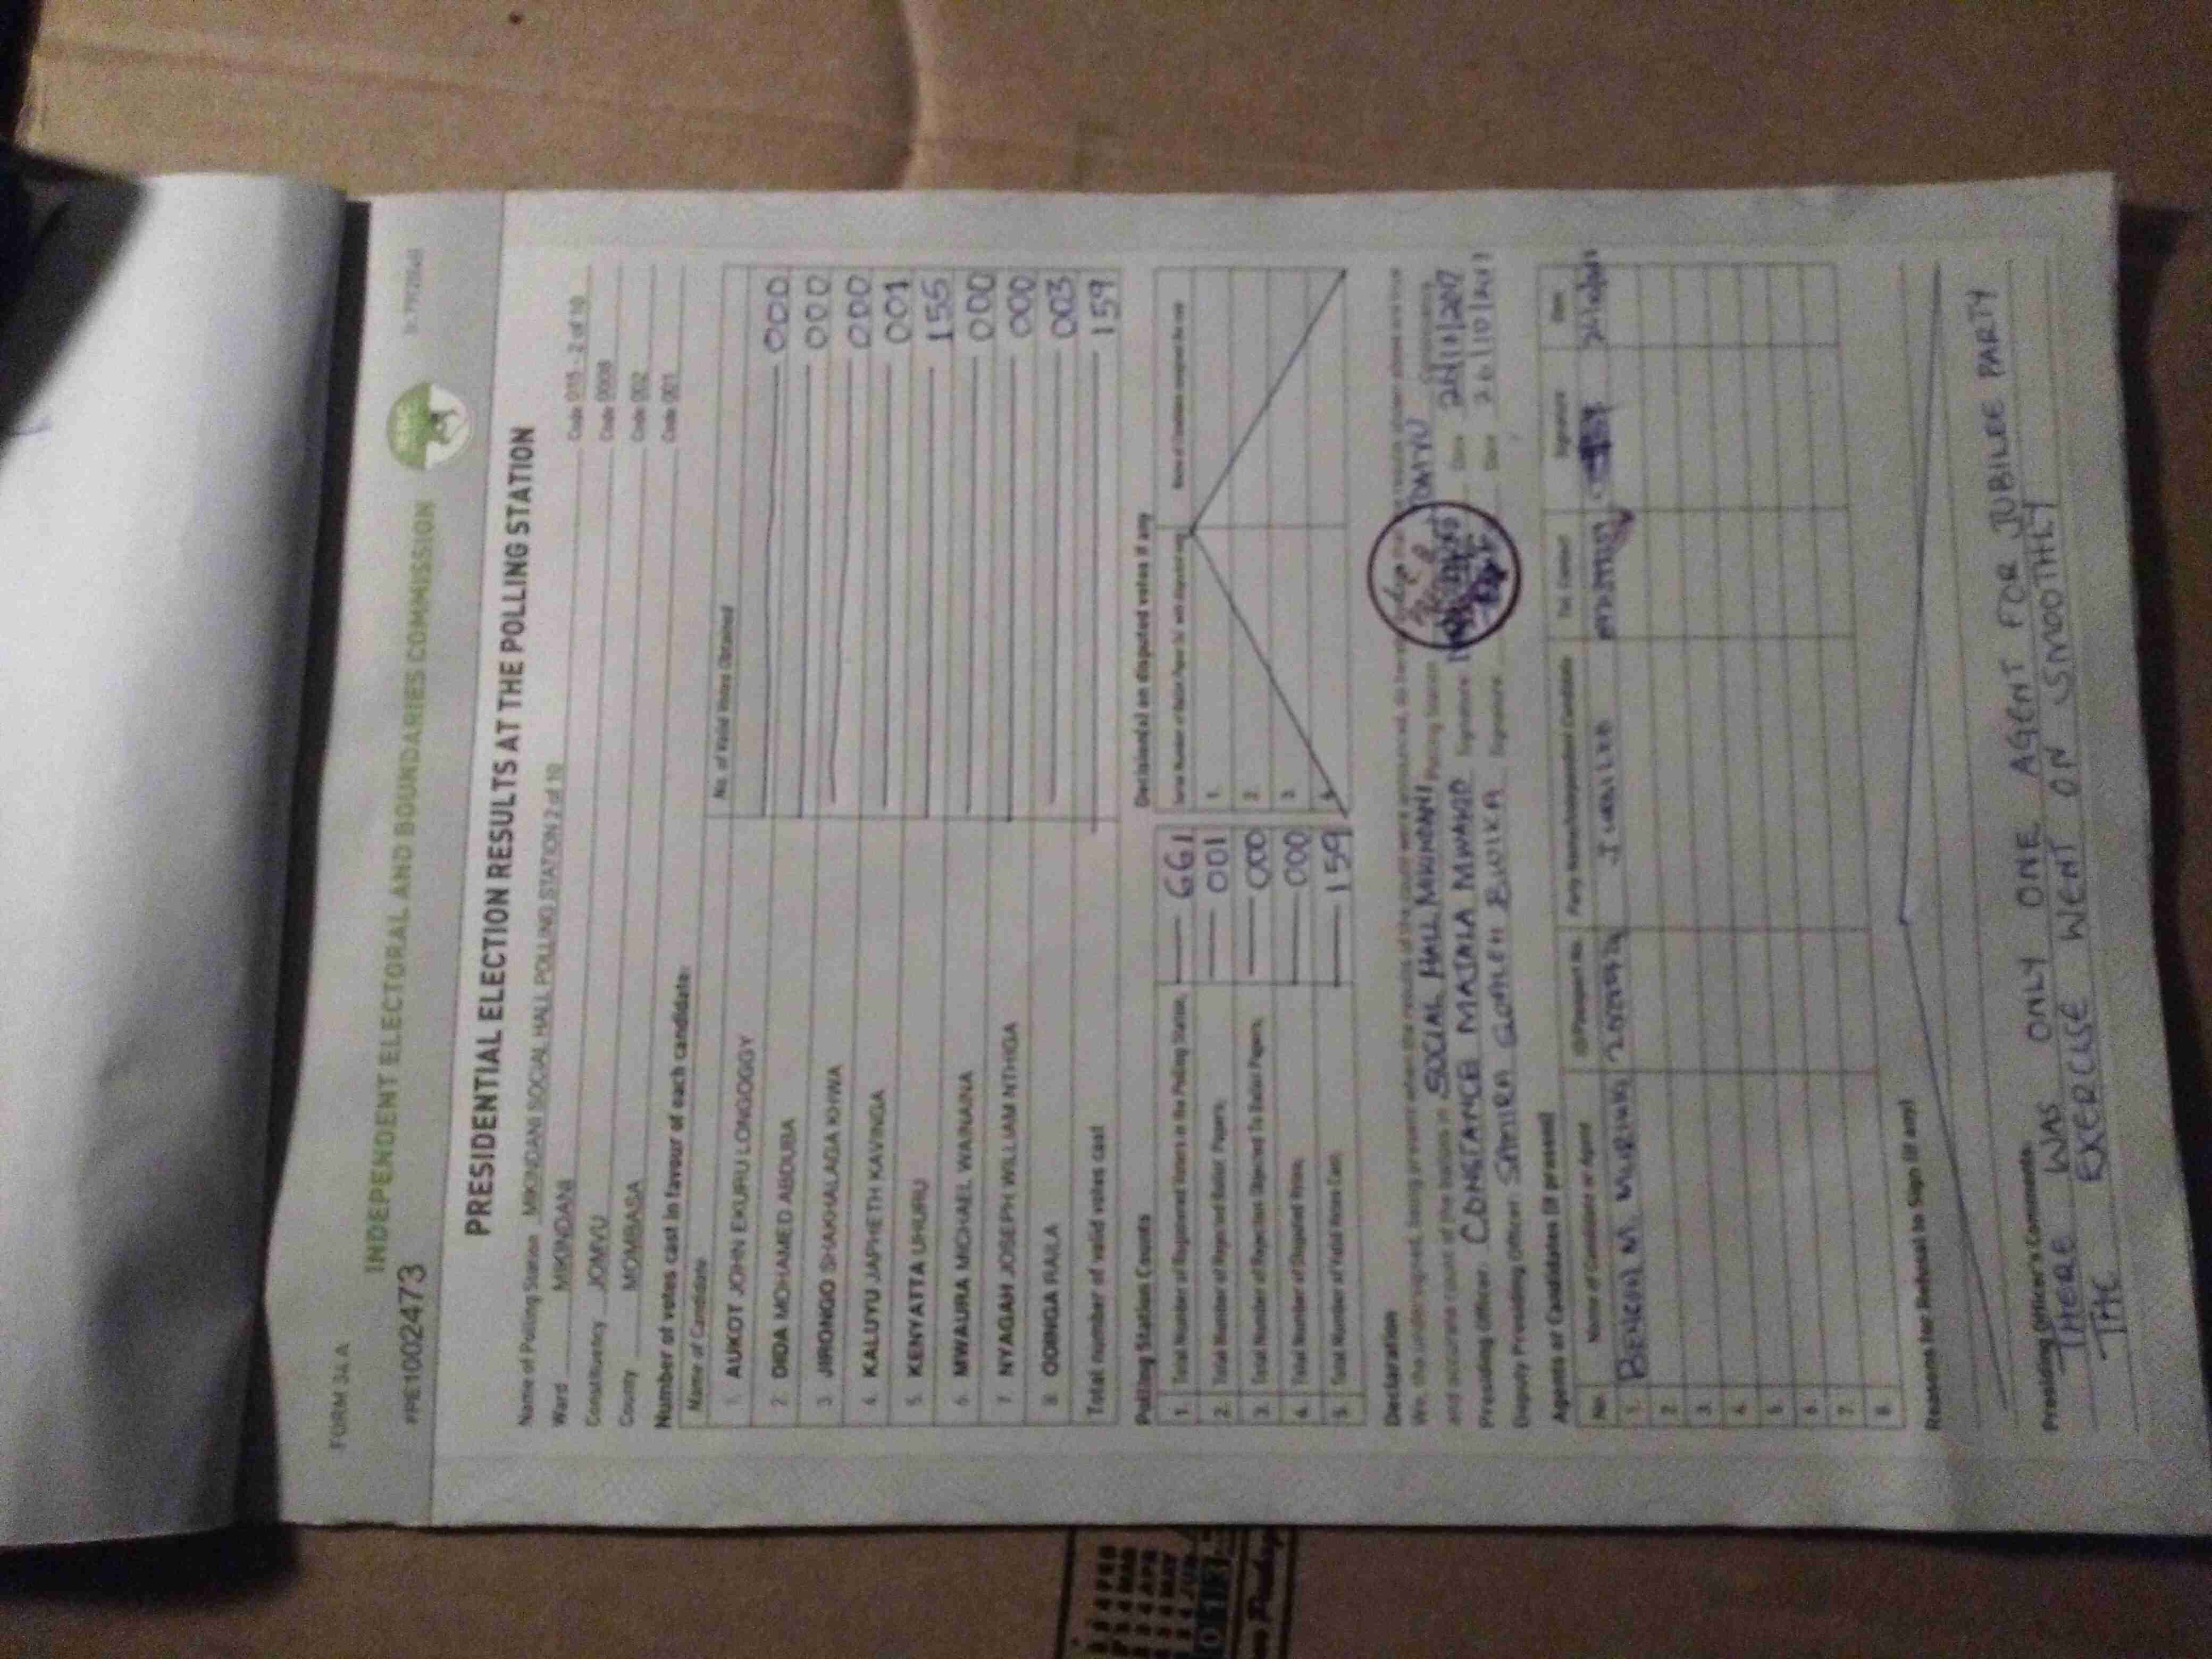 FORM 34 A
INDEPENDENT ELECTORAL AND BOUNDARIES COMMISSION
#PRE1002473
IEBC
PRESIDENTIAL ELECTION RESULTS AT THE POLLING STATION
Name of Polling Station MIKINDANI SOCIAL HALL POLLING STATION 2 of 10 Code 015 - 2 of 10
Ward MIKINDANI Code 0008
Constituency JOMVU Code 002
County MOMBASA Code 001
Number of votes cast in favour of each candidate:
Name of Candidate No. of Valid Votes Obtained
1. AUKOT JOHN EKURU LONGOGGY 000
2. DIDA MOHAMED ABDUBA 000
3. JIRONGO SHAKHALAGA KHWA 000
4. KALUYU JAPHETH KAVINGA 001
5. KENYATTA UHURU 155
6. MWAURA MICHAEL WAINAINA 000
7. NYAGAH JOSEPH WILLIAM NTHIGA 000
8. ODINGA RAILA 003
Total number of valid votes cast 159
Polling Station Counts
1. Total Number of Registered Voters in the Polling Station 661
2. Total Number of Rejected Ballot Papers 001
3. Total Number of Rejection Objected To Ballot Papers 000
4. Total Number of Disputed Votes 000
5. Total Number of Valid Votes Cast 159
Decision(s) on disputed votes if any
1.
2.
3.
Declaration
We, the undersigned, being present when the results of the count were announced, do hereby declare that the results shown above are true
and accurate count of the ballots in SOCIAL HALL MIKINDANI Polling Station
Presiding Officer CONSTANCE MAJALA MWAKIO Signature Date 26/10/2017
Deputy Presiding Officer SAMIRA Signature Date 26/10/2017
Agents or Candidates (if present)
No. Name of Candidate or Agent ID/Passport No. Party Name/Independent Candidate Tel. Contact Signature Date
1. JUBILEE
2.
3.
4.
5.
6.
7.
8.
Reasons for Refusal to Sign (if any)
Presiding Officer's Comments:
THERE WAS ONLY ONE AGENT FOR JUBILEE PARTY
THE EXERCISE WENT ON SMOOTHLY